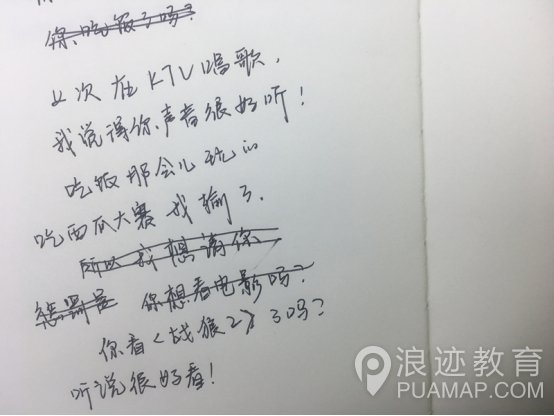 你吃饭了吗?
上次在KTV唱歌,
我说得你声音很好听!
吃饭那会儿玩的
吃西瓜大赛我输了.
所以我想请你
你想看电影吗?
你看《战狼2》了吗?
听说很好看!
浪迹教育
PUAMAP.COM